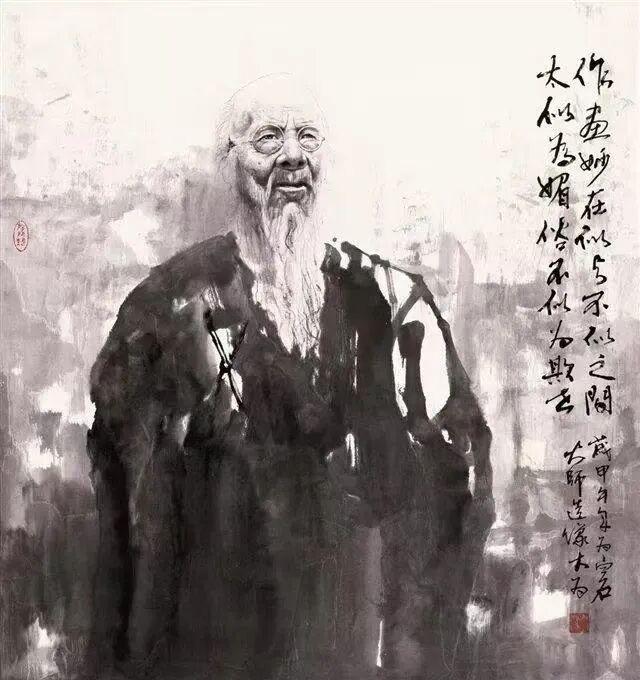 作画妙在似与不似之間
太似為媚俗不似为欺世
歲甲午年为白石
大师造像大为